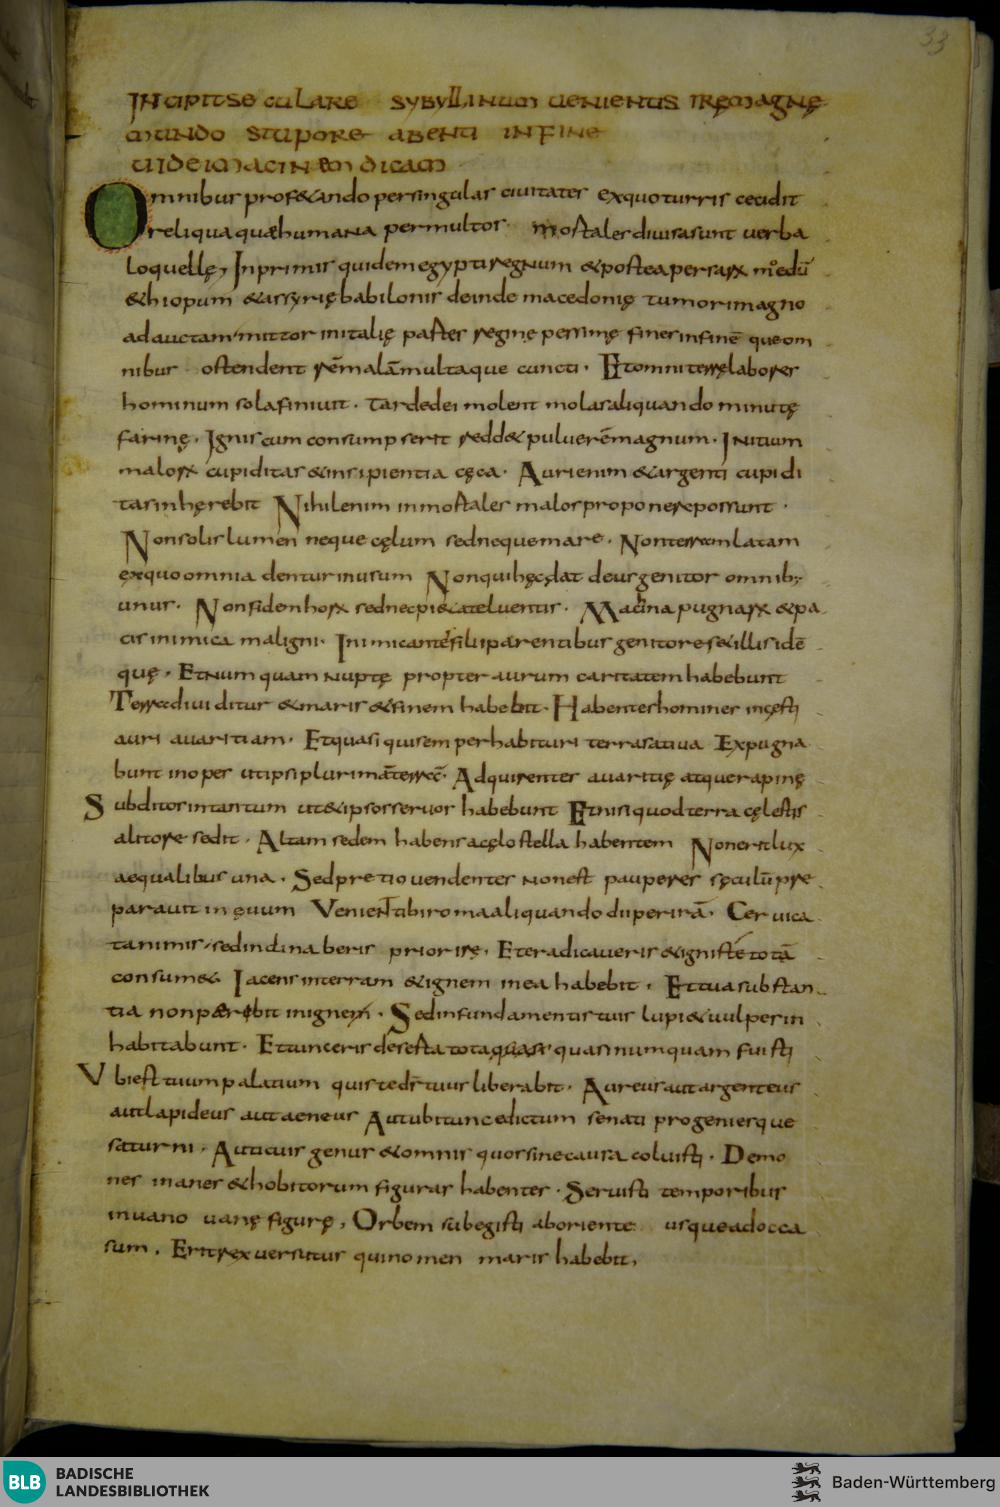 33
INCIPIT SECULARE SYBYLLINUM UENIENTIS IRĘ MAGNĘ
MUNDO STUPORE ABENTI IN FINE
UIDE IMACINEM DICAM
Omnibus prof&ando persingulas ciuitates exquoturris cecidit
reliquaquæhumana permultos. mortalesdiuisasunt uerba
loquellę, Inprimis quidemegyptiregnum &posteapersarum medū
&hiopum &assyriębabilonis deinde macedonię tumorimagno
adauctam mittor initalię paster regine pessimę finesinfinē queom
nibus ostendent rēmalāmultaque cuncti. Etomniterręlabores
hominum solafiniuit. Tardedei molent molasaliquando minutę
farinę. Igniscumconsumpserit redd&puluerēmagnum. Initium
malorum cupiditas&insipientia cęca. Aurienim &argenti cupidi
tasinhęrebit Nihilenim inmortales maiosproponerepossunt.
Nonsolislumen neque cęlum sednequemare. Nonterramlatam
exquoomnia denturinusum Nonquihęcdat deusgenitor omnib;
unus. Nonfidemhorum sednecpi&ateluentis. Machina pugnarum &pa
cisinimica maligni. Inimicantesfiliiparentibusgenitores&illisidē
quę. Etnumquam nuptę propter aurum caritatemhabebunt
Terradiuiditur &maris&finem habebit. Habenteshomines incęsti
auri auaritiam. Etquasiquisemperhabituri terrasatiua Expugna
bunt inopes utipsiplurimāterrā. Adquirentes auaritię atquerapinę
Subditosintantum ut&ipsosseruos habebunt Etnisiquodterra cęlestis
alitore sedit. Altam sedem habensacęlostella habentem Noneritlux
aequalibus una. Sedpretiouendentes nonest pauperes sęculūpre
parauit inęuum Venientibiromaaliquandodiiperirā. Ceruica
tanimis sedindinaberis priorisę. Eteradicaueris &ignistetotā
consum& Iacensinterram &ignem inea habebit. Ettuasubstan
tia nonpærebit inignem. Sedinfundamentistuis lupi&uulpesin
habitabunt. Ettunceris desertatota quasinumquam fuisti
Vbiesttuumpalatium quistedr̄tuusliberabit. Aureusautargenteus
autlapideus autaeneus Autubituncedictum senati progeniesque
saturni. Auticuis genus &omnis quossinecausa coluisti. Demo
nes inanes &hobitorum figuras habentes. Seruisti temporibus
inuano uanę figurę, Orbem subegisti aboriente usqueadocca
sum. Eritrexuersutus quinomen maris habebit,
BLB
BADISCHE
LANDESBIBLIOTHEK
Baden-Württemberg